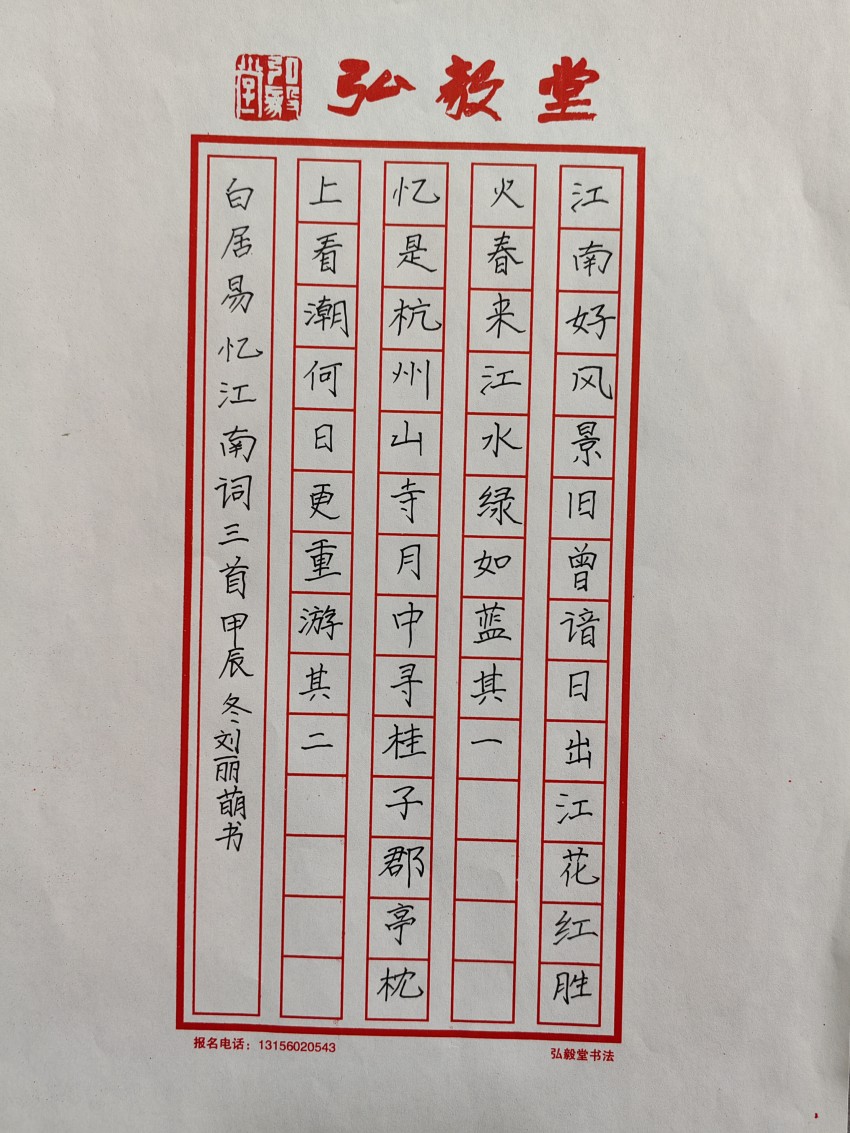 弘毅堂
弘毅堂
江南好风景旧曾谙日出江花红胜
火春来江水绿如蓝其一
忆是杭州山寺月中寻桂子郡亭枕
上看潮何日更重游其二
白居易忆江南词三首甲辰冬刘丽萌书
报名电话：13156020543
弘毅堂书法